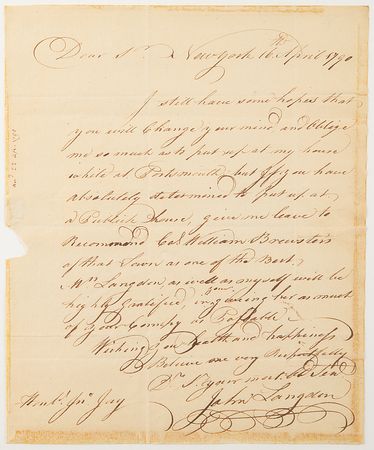 Dear Sr. New York 16th April 1790
I still have some hopes that
you will Change your mind and Oblige
me so much as to put up at my house
while at Portsmouth, but if you have
absolutely determined to put up at
a Publick House, give me leave to
Recommend Col William Brewsters
of that Town as one of the Best
Mrs Langdon, as well as myself will be
highly Gratified, in your giving her as much
of your Compy. as Possable.
Wishing you Health and happiness
Believe me very Respectfully
Dr. Sr. your most Ob Ser
John Langdon
Honbl. Jno Jay